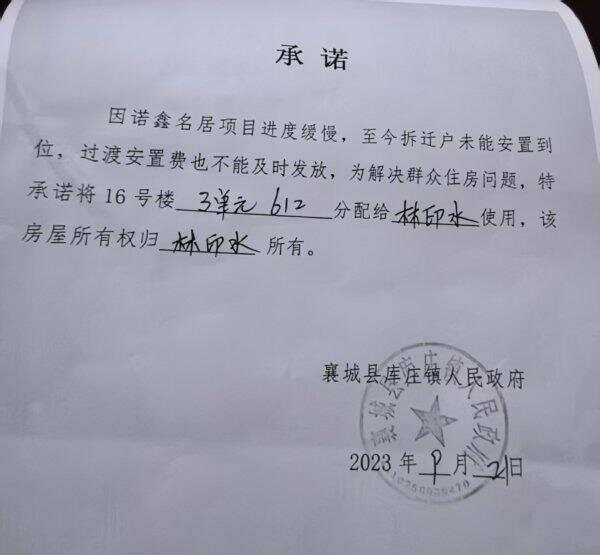 承诺
因诺鑫名居项目进度缓慢，至今拆迁户未能安置到
位，过渡安置费也不能及时发放，为解决群众住房问题，特
承诺将16号楼 3单元 612 分配给 林印水 使用，该
房屋所有权归 林印水 所有。
襄城县库庄镇人民政府
襄城县库庄镇人民政府
2023年9月21日